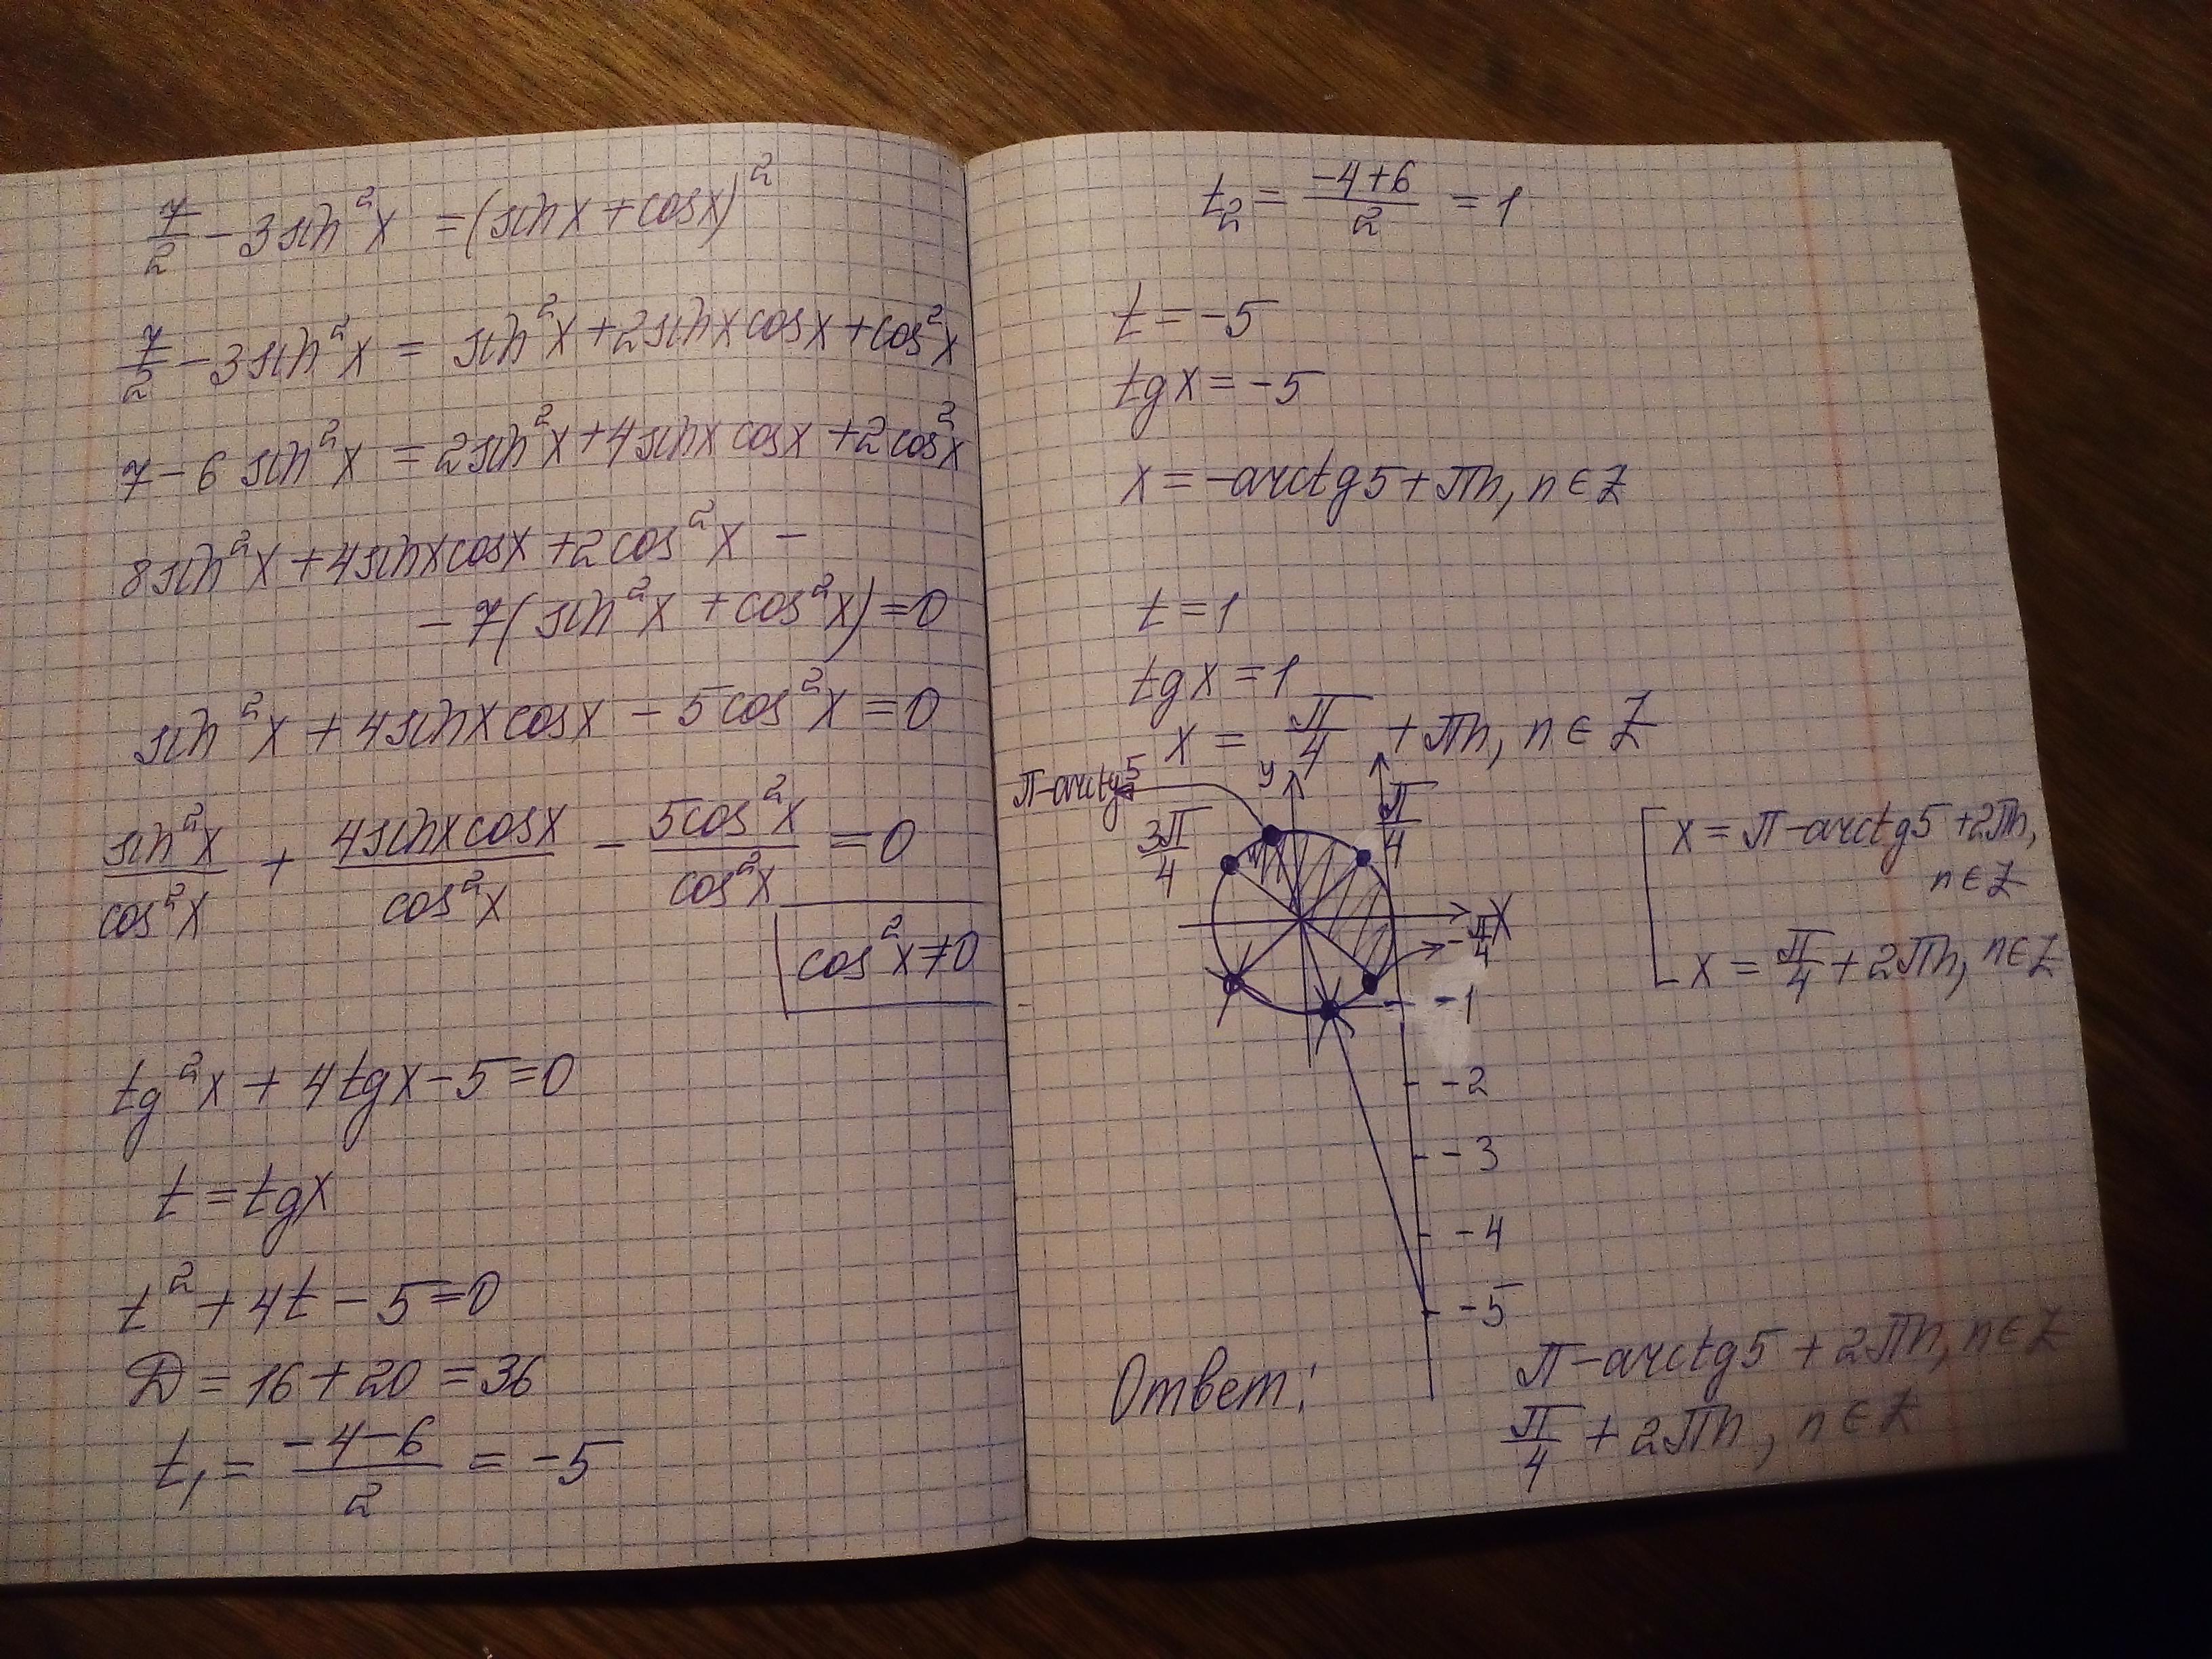 7/2 - 3sin²x = (sinx + cosx)²
7/2 - 3sin²x = sin²x + 2sinxcosx + cos²x
7 - 6sin²x = 2sin²x + 4sinxcosx + 2cos²x
8sin²x + 4sinxcosx + 2cos²x -
- 7(sin²x + cos²x) = 0
sin²x + 4sinxcosx - 5cos²x = 0
sin²x/cos²x + 4sinxcosx/cos²x - 5cos²x/cos²x = 0
cos²x ≠ 0
tg²x + 4tgx - 5 = 0
t = tgx
t² + 4t - 5 = 0
D = 16 + 20 = 36
t₁ = (-4-6)/2 = -5
t₂ = (-4+6)/2 = 1
t = -5
tgx = -5
x = -arctg5 + πn, n ∈ Z
t = 1
tgx = 1
x = π/4 + πn, n ∈ Z
π-arctg5
y
3π/4
π/4
x
-π/4
-1
-2
-3
-4
-5
x = π-arctg5 + 2πn,
n ∈ Z
x = π/4 + 2πn, n ∈ Z
Ответ: π-arctg5 + 2πn, n ∈ Z
π/4 + 2πn, n ∈ Z